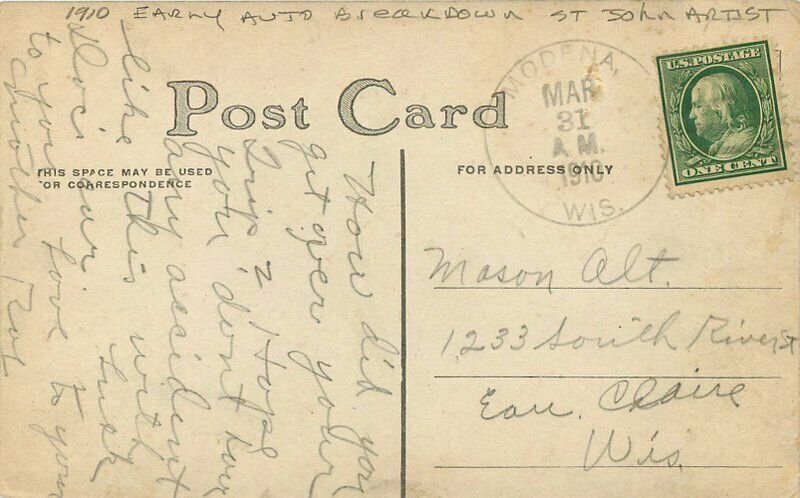 1910 EARLY AUTO BREAKDOWN ST JOHN ARTIST
Post Card
THIS SPACE MAY BE USED
FOR CORRESPONDENCE
FOR ADDRESS ONLY
MODENA,
MAR
31
A.M.
1910
WIS.
U.S. POSTAGE
ONE CENT
Mason Alt.
1233 South River St
Eau Claire
Wis.
How did you
get over your
trip? Hope
you don't have
any accident
like this with
luck
to you love to your